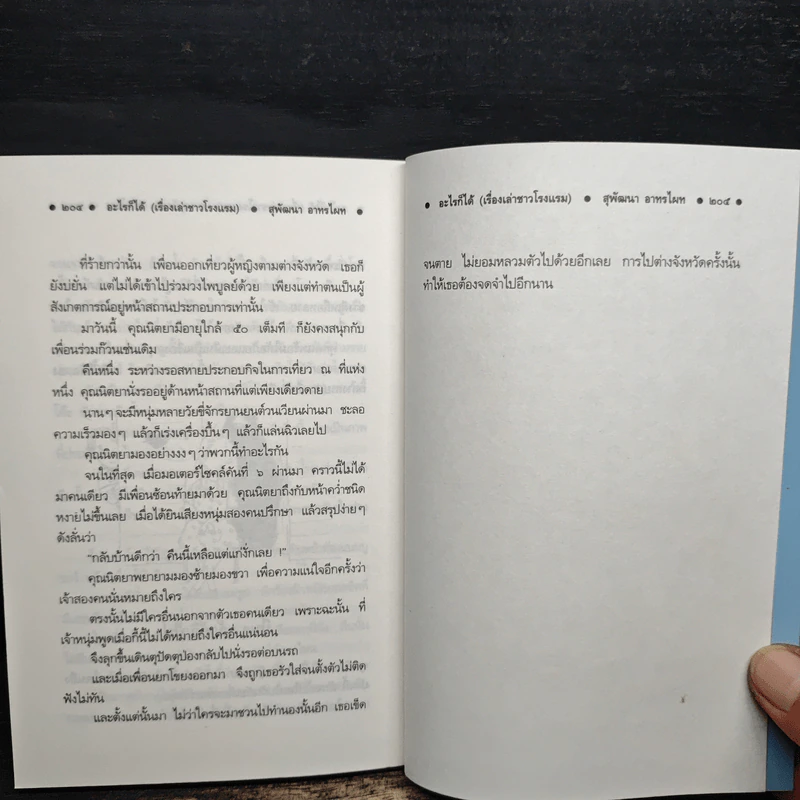 ● ๒๐๔ ● อะไรก็ได้ (เรื่องเล่าชาวโรงแรม) ● สุพัฒนา อาทรไผท ●
ที่ร้ายกว่านั้น เพื่อนออกเที่ยวผู้หญิงตามต่างจังหวัด เธอก็
ยังบยั่น แต่ไม่ได้เข้าไปร่วมวงไพบูลย์ด้วย เพียงแต่ทำตนเป็นผู้
สังเกตการณ์อยู่หน้าสถานประกอบการเท่านั้น
มาวันนี้ คุณนิตยามีอายุใกล้ ๕๐ เต็มที ก็ยังคงสนุกกับ
เพื่อนร่วมก๊วนเช่นเดิม
คืนหนึ่ง ระหว่างรอสหายประกอบกิจในการเที่ยว ณ ที่แห่ง
หนึ่ง คุณนิตยานั่งรออยู่ด้านหน้าสถานที่แต่เพียงเดียวดาย
นานๆ จะมีหนุ่มหลายวัยขี่จักรยานยนต์วนเวียนผ่านมา ชะลอ
ความเร็วมองๆ แล้วก็เร่งเครื่องบึ้นๆ แล้วก็แล่นฉิวเลยไป
คุณนิตยามองอย่างงงๆ ว่าพวกนี้ทำอะไรกัน
จนในที่สุด เมื่อมอเตอร์ไซค์คันที่ ๖ ผ่านมา คราวนี้ไม่ได้
มาคนเดียว มีเพื่อนซ้อนท้ายมาด้วย คุณนิตยาถึงกับหน้าคว่ำชนิด
หงายไม่ขึ้นเลย เมื่อได้ยินเสียงหนุ่มสองคนปรึกษา แล้วสรุปง่ายๆ
ดังลั่นว่า
"กลับบ้านดีกว่า คืนนี้เหลือแต่แก่งั่กเลย !"
คุณนิตยาพยายามมองซ้ายมองขวา เพื่อความแน่ใจอีกครั้งว่า
เจ้าสองคนนั่นหมายถึงใคร
ตรงนั้นไม่มีใครอื่นนอกจากตัวเธอคนเดียว เพราะฉะนั้น ที่
เจ้าหนุ่มพูดเมื่อกี้นี้ไม่ได้หมายถึงใครอื่นแน่นอน
จึงลุกขึ้นเดินตุปัดตุป่องกลับไปนั่งรอต่อบนรถ
และเมื่อเพื่อนยกโขยงออกมา จึงถูกเธอรัวใส่จนตั้งตัวไม่ติด
ฟังไม่ทัน
และตั้งแต่นั้นมา ไม่ว่าใครจะมาชวนไปทำนองนั้นอีก เธอเข็ด
● อะไรก็ได้ (เรื่องเล่าชาวโรงแรม) ● สุพัฒนา อาทรไผท ● ๒๐๕ ●
จนตาย ไม่ยอมหลวมตัวไปด้วยอีกเลย การไปต่างจังหวัดครั้งนั้น
ทำให้เธอต้องจดจำไปอีกนาน